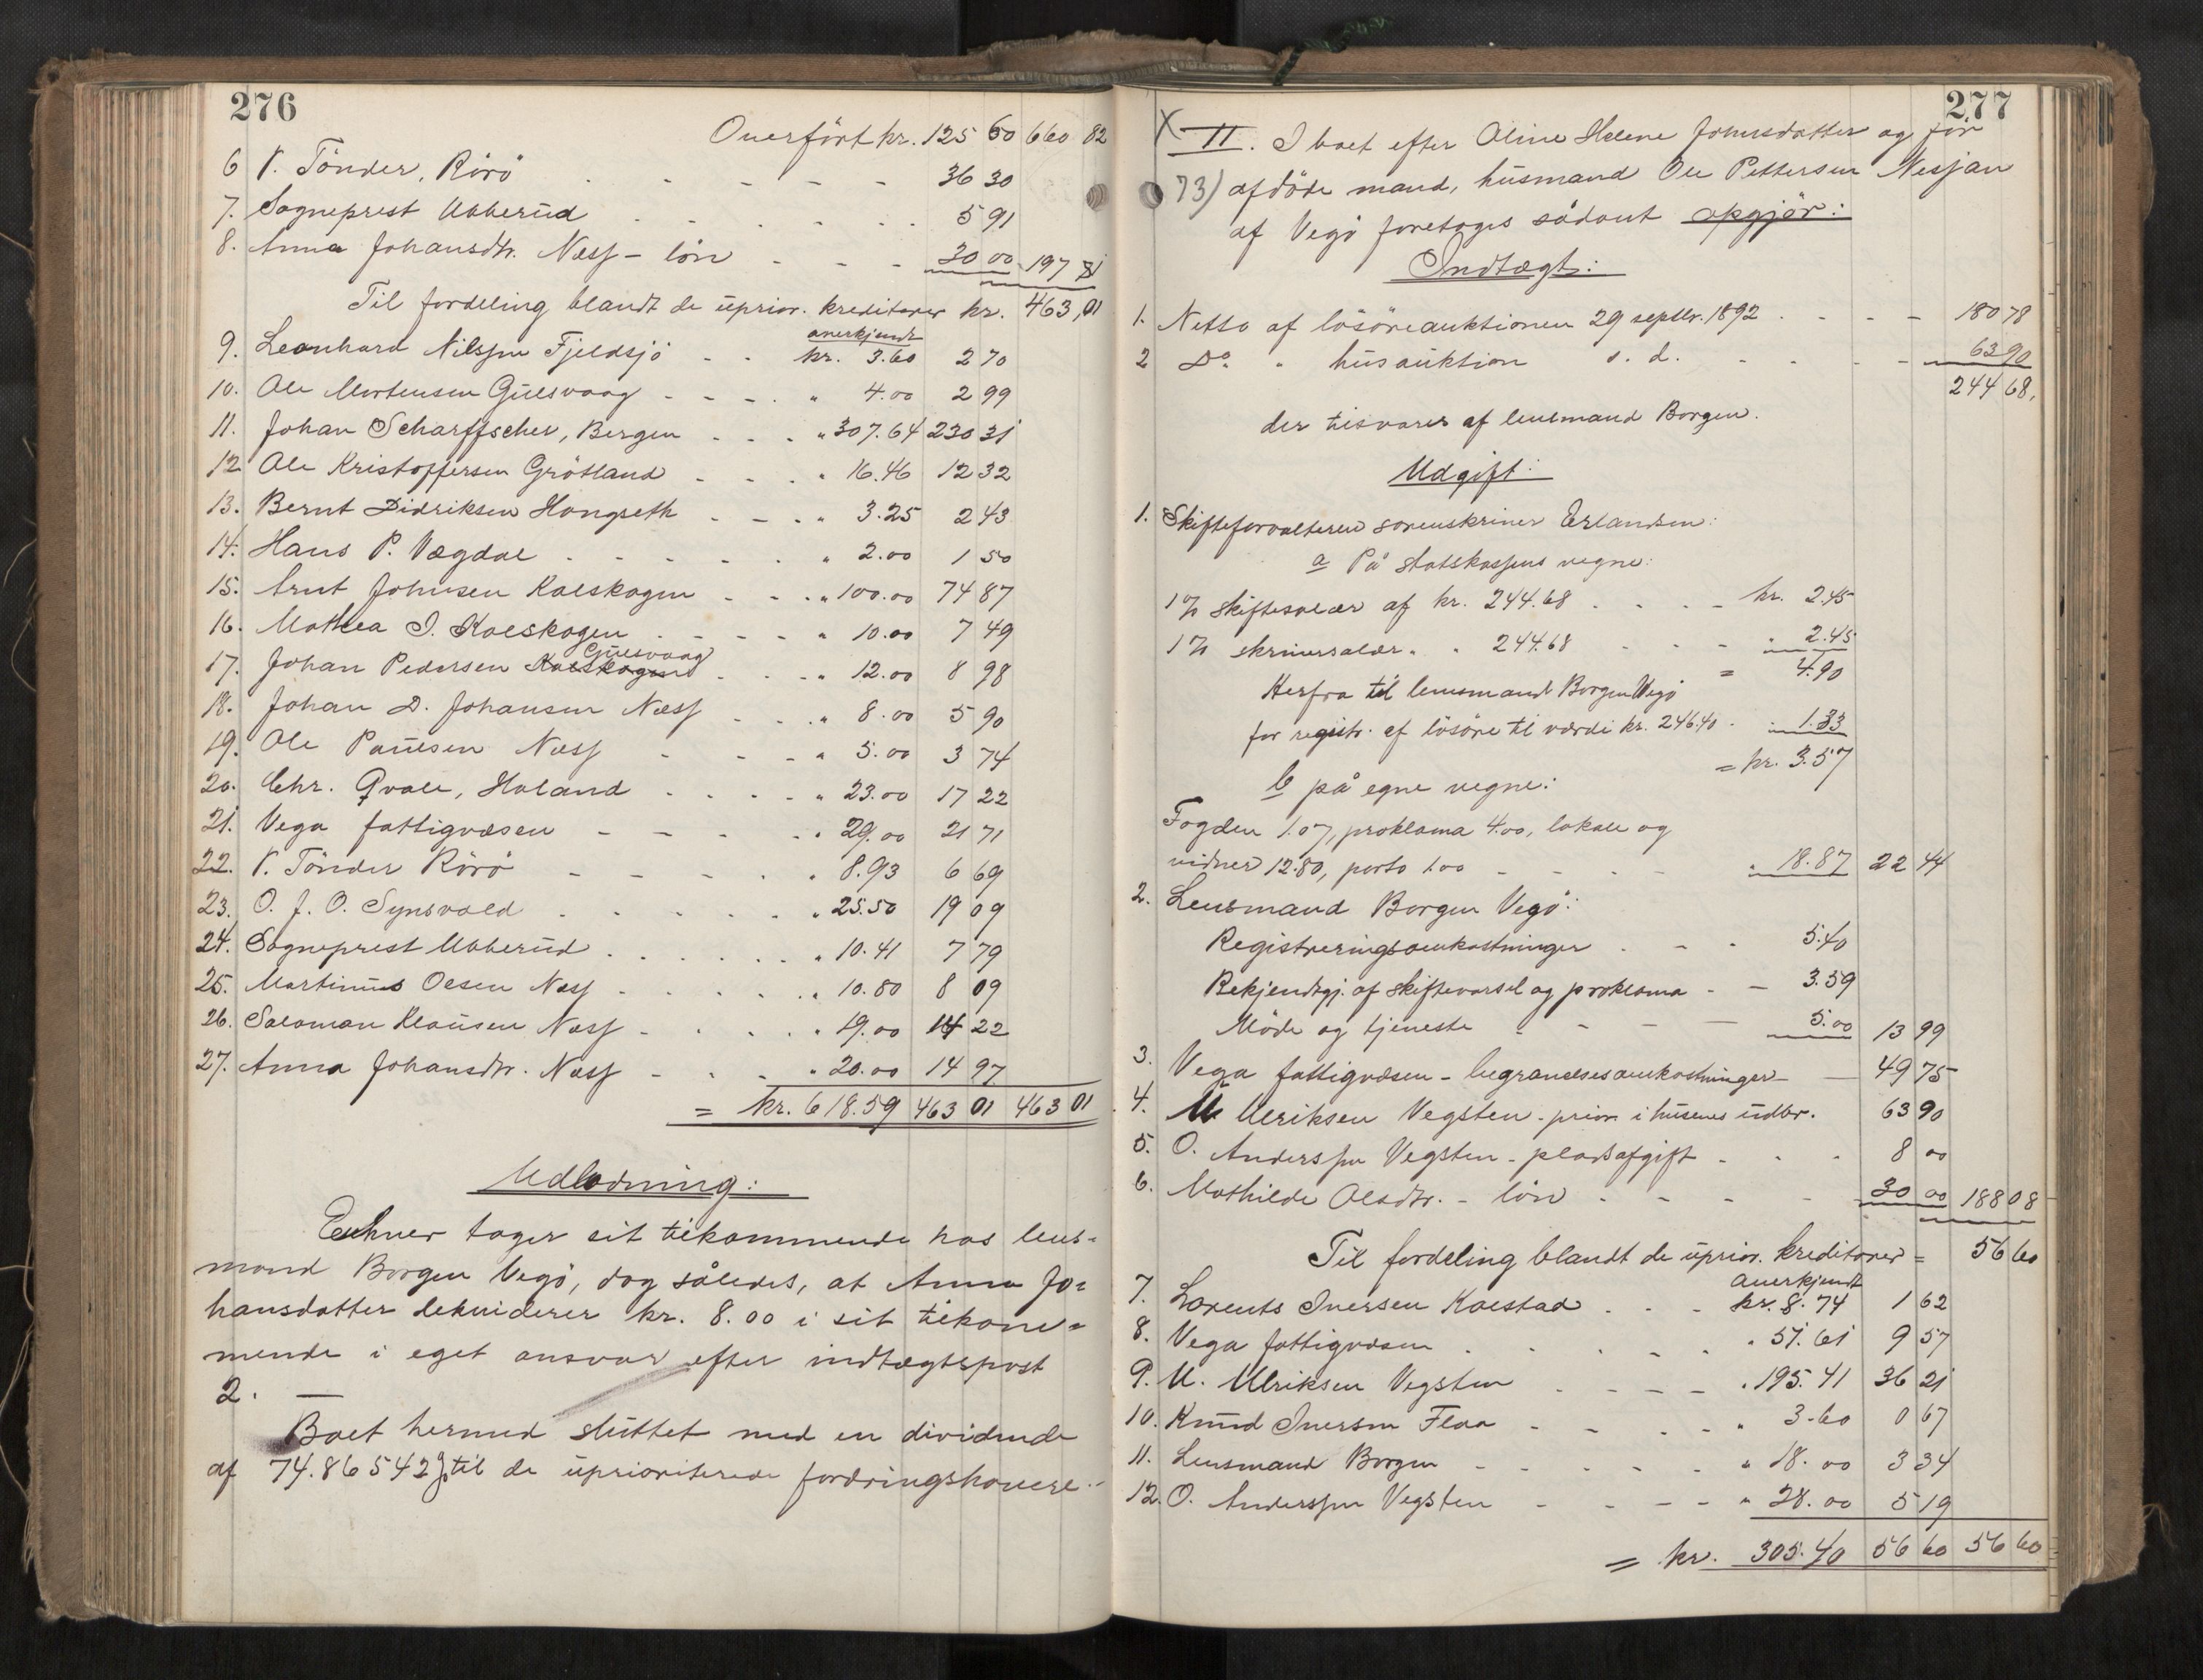 276
Overført kr. 125 60 660 82
6 V. Tönder, Rörö . - - - - 36 30
7. Sogneprest Ubberud . - . . . . 5 91
8. Anna Johansdtr. Næss - lön - - - 30 00 197 81
Til fordeling blandt de uprior. kreditorer kr. 463,01
anerkjendt
9. Leonhard Nilssen Fjeldsjö - - kr. 3.60 2 70
10. Ole Mortensen Gulsvaag - - - . " 4.00 2 99
11. Johan Scharffscher, Bergen - - . " 307.64 230 31
12 Ole Kristoffersen Grötland - - . " 16.46 12 32
13. Bernt Didriksen Hongseth - - . " 3.25 2 43
14. Hans P. Vægdal . - - - - . " 2.00 1 50
15. Arnt Johnsen Kalskagen - - . " 100.00 74 87
16. Mathea I. Kalskagen . - - - - " 10.00 7 49
Gulsvaag
17. Johan Pedersen Kalskagen . - - " 12.00 8 98
18. Johan D. Johansen Næss - - . " 8.00 5 90
19. Ole Paulsen Næss - - - " 5.00 3 74
20. Chr. Qvale, Holand - - - - " 23.00 17 22
21. Vega fattigvæsen - - - . " 29.00 21 71
22. V. Tönder Rörö - - - . " 8.93 6 69
23. O. J. O. Synsvold . . . . . " 25.50 19 09
24. Sogneprest Ubberud . . . . . " 10.41 7 79
25. Martinus Olsen Næss - . . . . " 10.80 8 09
26. Salomon Klausen Næss - . . . " 19.00 14 22
27. Anna Johansdtr. Næss - . - " 20.00 14 97
= kr. 618.59 463 01 463 01
Udlodning:
Enhver tager sit tilkommende hos lens=
mand Borgen Vegö, dog således, at Anna Jo=
hansdatter lekviderer kr. 8.00 i sit tilkom=
mende i eget ansvar efter indtægtspost
2. —
Boet hermed sluttet med en dividende
af 74.86542 % til de uprioriterede fordringshavere.-
277
X II. I boet efter Oline Helene Johnsdatter og för
73) afdöde mand, husmand Ole Pettersen Nesjan
af Vegö foretages sådant opgjör:
Indtægt:
1. Netto af lösöreauktionen 29 septbr. 1892 . - - - 180 78
2 Do. " husauktion s. d. - - - - 63 90
244 68,
der tilsvares af lensmand Borgen.
Udgift:
1. Skifteforvalteren sorenskriver Erlandsen:
a På statskassens vegne:
1 % skiftesalær af kr. 244.68 . . . - kr. 2.45
1 % skriversalær " " 244.68 - - - " 2.45
= 4.90
Herfra til lensmand Borgen Vegö
for registr. af lösöre til værdi kr. 246.40 - " 1.33
= kr. 3.57
b på egne vegne:
Fogden 1.07, proklama 4.00, lokale og
vidner 12.80, porto 1.00 - - - - " 18.87 22 44
2. Lensmand Borgen Vegö:
Registreringsomkostninger . - - 5.40
Bekjendtgj. af skiftevarsel og proklama - - 3.59
Möde og tjeneste - - - - 5.00 13 99
3. Vega fattigvæsen - begravelsesomkostninger - - 49 75
4. M Ulriksen Vegsten - prior. i husenes udbr. 63 90
5. O. Anderssen Vegsten - pladsafgift - - - 8 00
6. Mathilde Olsdtr. - lön - - - - 30 00 188 08
Til fordeling blandt de uprior. kreditorer = 56 60
anerkjendt
7. Lorents Iversen Kalstad . . - kr. 8.74 1 62
8. Vega fattigvæsen . . . . . " 51.61 9 57
9. M. Ulriksen Vegsten . - - - " 195.41 36 21
10. Knud Iversen Floa - - - - " 3.60 0 67
11. Lensmand Borgen - - - - - " 18.00 3 34
12. O. Anderssen Vegsten - - - - " 28.00 5 19
= kr. 305.40 56 60 56 60